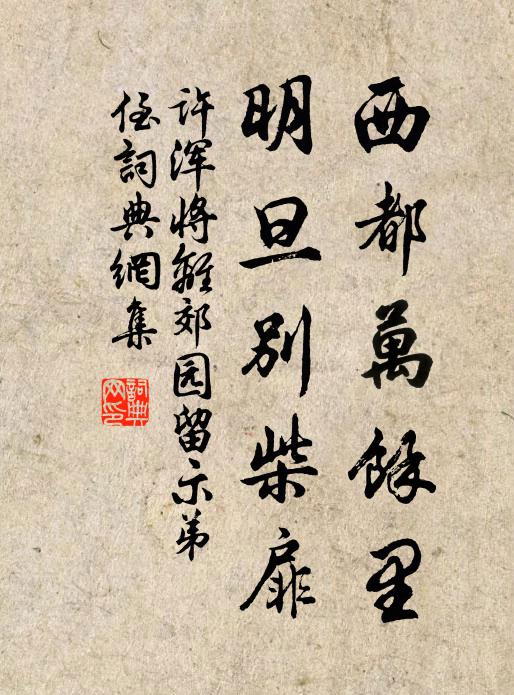 西都萬餘里
明旦別柴扉
许浑将離郊园留示弟
侄詞典網集
詞典
网印